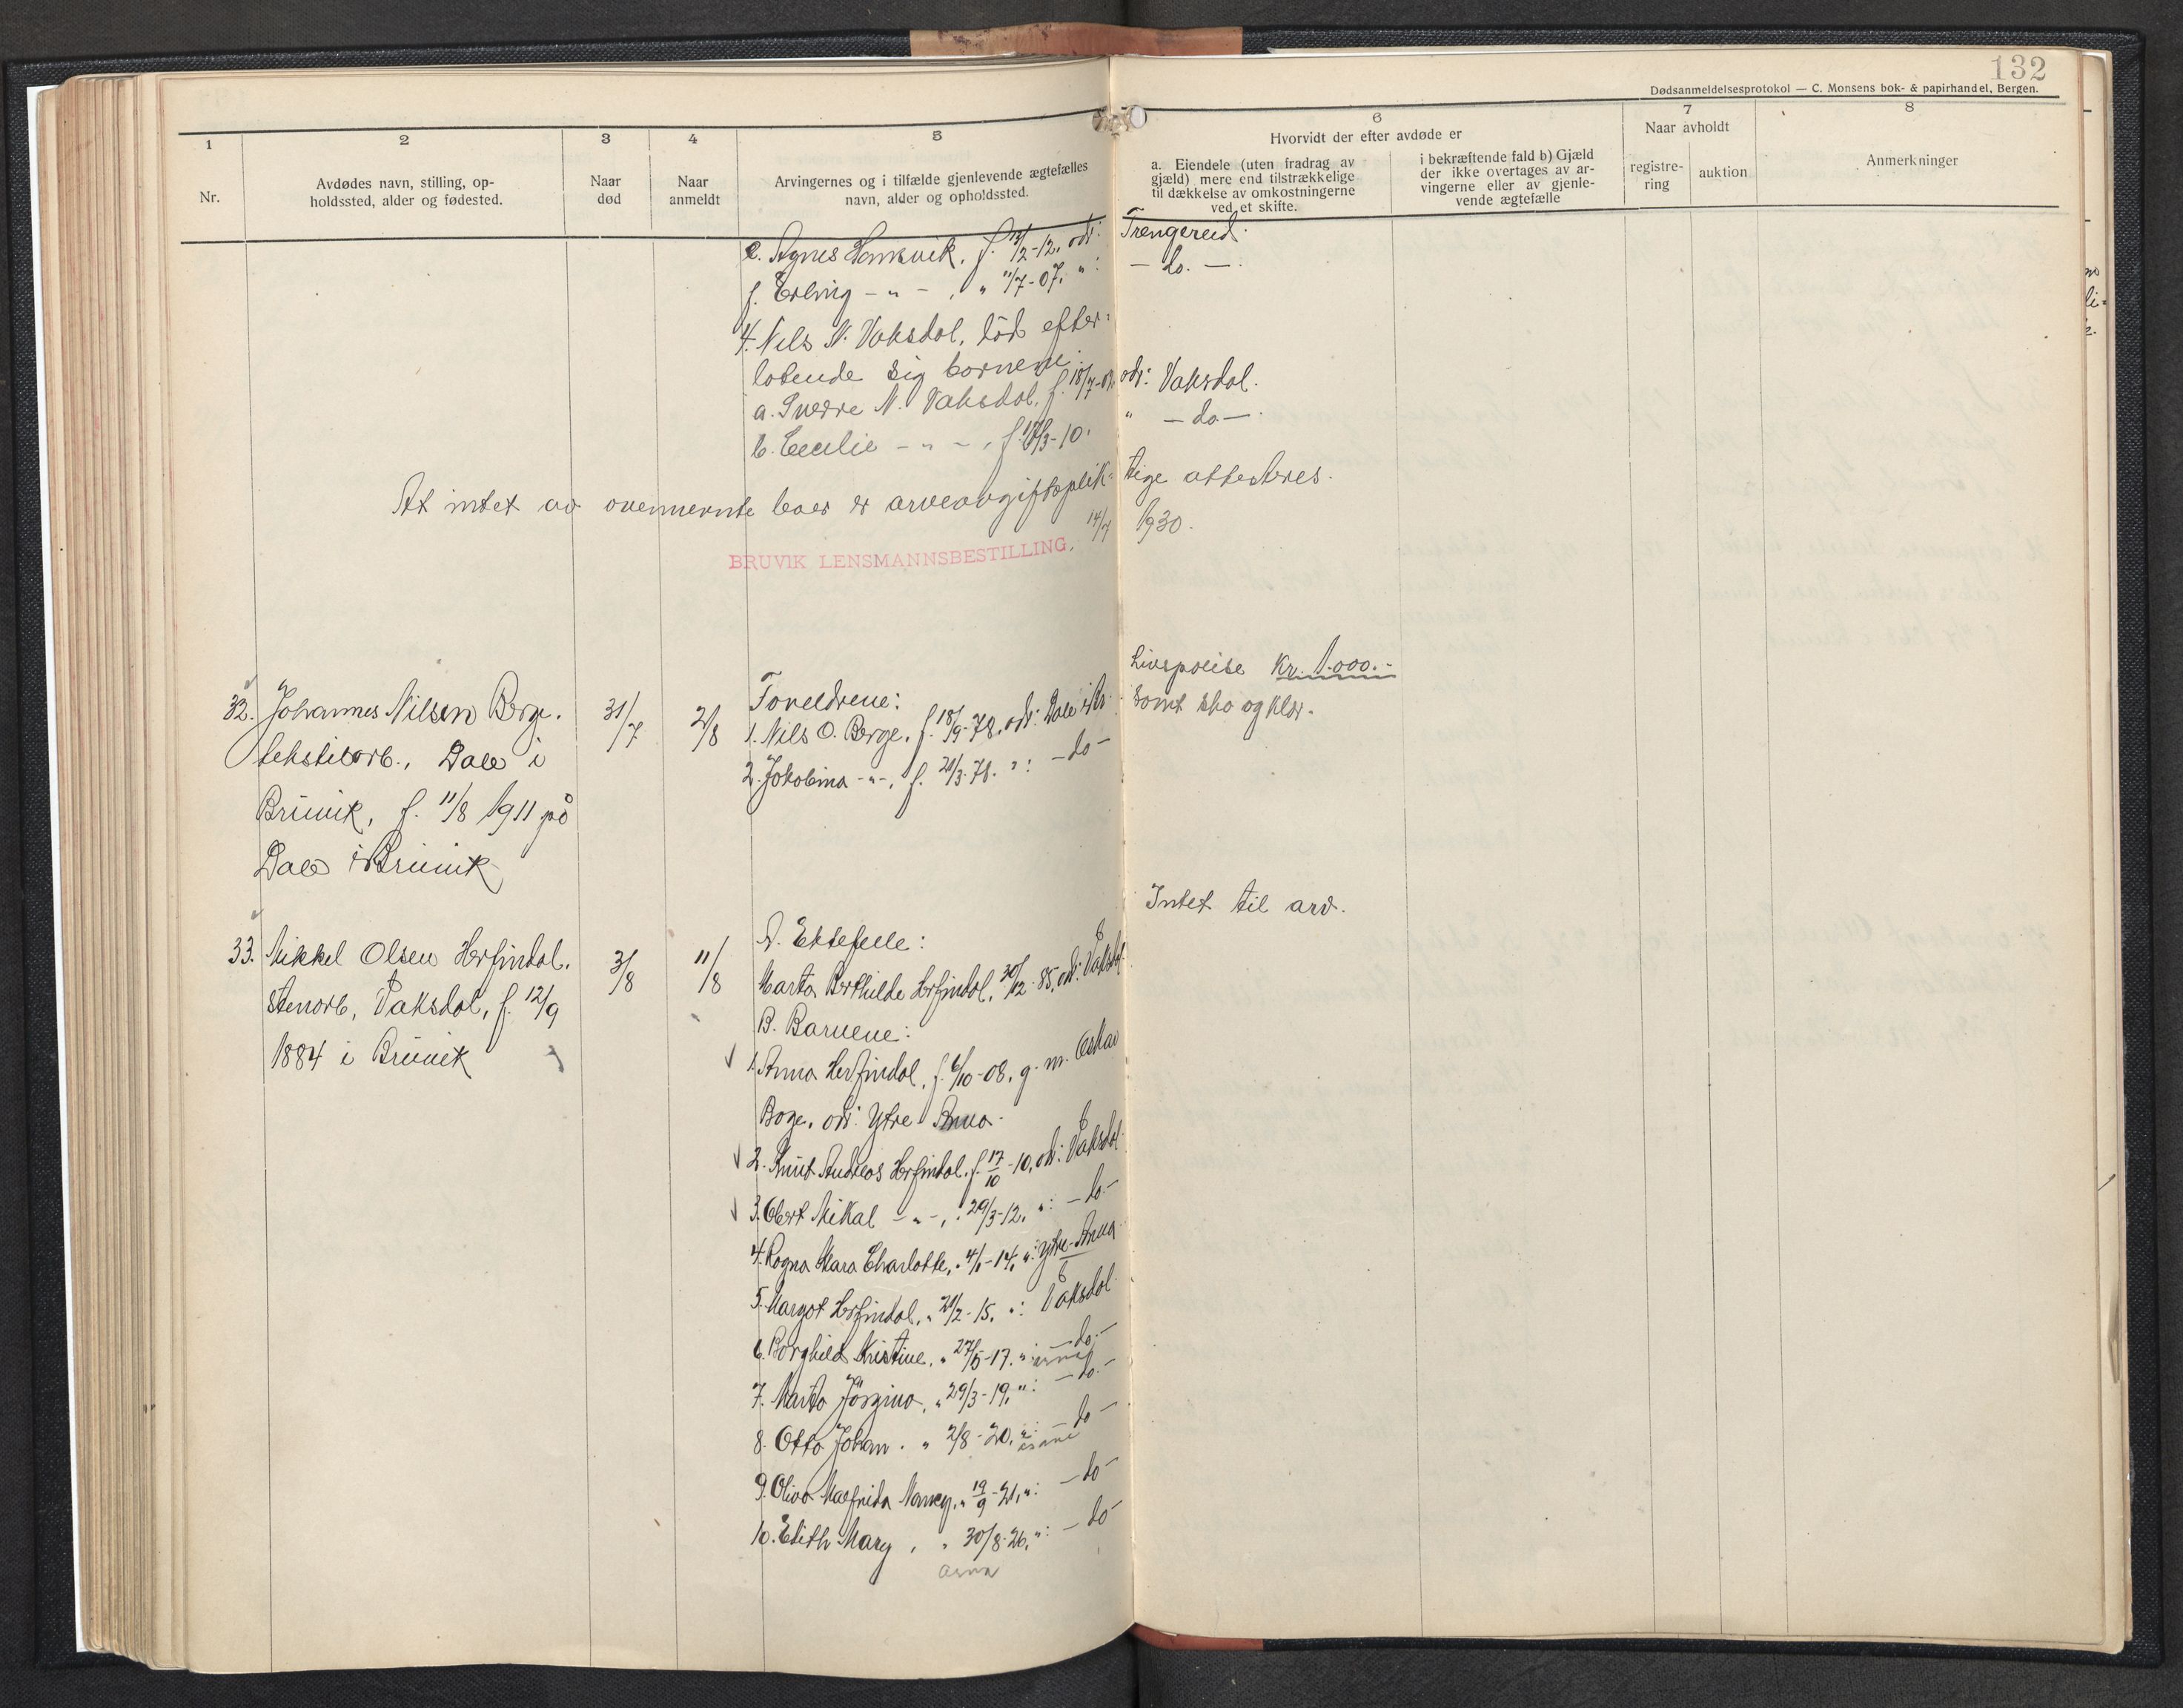 132
Dødsanmeldelsesprotokol — C. Monsens bok- & papirhandel, Bergen.
1
Nr.
2
Avdødes navn, stilling, op-
holdssted, alder og fødested.
3
Naar
død
4
Naar
anmeldt
5
Arvingernes og i tilfælde gjenlevende ægtefælles
navn, alder og opholdssted.
6
Hvorvidt der efter avdøde er
a. Eiendele (uten fradrag av
gjæld) mere end tilstrækkelige
til dækkelse av omkostningerne
ved et skifte.
i bekræftende fald b) Gjæld
der ikke overtages av ar-
vingerne eller av gjenle-
vende ægtefælle
7
Naar avholdt
registre-
ring
auktion
8
Anmerkninger
e. Agnes , f. /2-12. ads: Trengereid.
f. Erling - " - , " 11/7-07. " : - do. -
4. Nils N. Vaksdal, død efter-
latende sig barnene:
a. Sverre N. Vaksdal, f. 18/7- ads: Vaksdal.
b. Cecilie - " - , f. /3-10. " - do -
At intet av ovennevnte boer er arveavgiftsplik-tige attesteres.
14/7 1930.
BRUVIK LENSMANNSBESTILLING.
32. Johannes Nilsen Berge.
tekstilarb., Dale i
Bruvik, f. 11/8 1911 på
Dale i Bruvik
31/7
2/8
Foreldrene:
1. Nils O. Berge, f. 18/9-78, ads: Dale i Br.
2. Jakobina - " -, f. 21/3-78. " : - do -
Livspolise Kr. 1.000.-
samt sko og klær.
33. Mikkel Olsen Herfindal.
stenarb, Vaksdal, f. 12/9
1884 i Bruvik
3/8
11/8
A. Ektefelle:
Marta Berthilde Herfindal, 30/12-85, ads: Vaksdal
B. Barnene:
1. Anna Herfindal, f. 6/10-08, g. m. Oskar
Boge, ads: Ytre Arna.
2. Knut Andreas Herfindal, f. 17/10-10, ads: Vaksdal
3. Obert Mikal - " -, " 29/3-12, " : - do -
4. Ragna Klara Charlotte, " 4/1-14, " : Ytre-Arna
5. Margot Herfindal, " 21/2-15, " : Vaksdal
6. Borghild Kristine, " 27/5-17. " : - do -
7. Marta Jörgina, " 29/3-19, " : - do -
8. Otto Johan . " 2/8-20, " : - do -
9. Oliva Malfrida Nancy, " 19/9-21, " : - do -
10. Edith Mary , " 30/8-26, " : - do -
arna
Intet til arv.